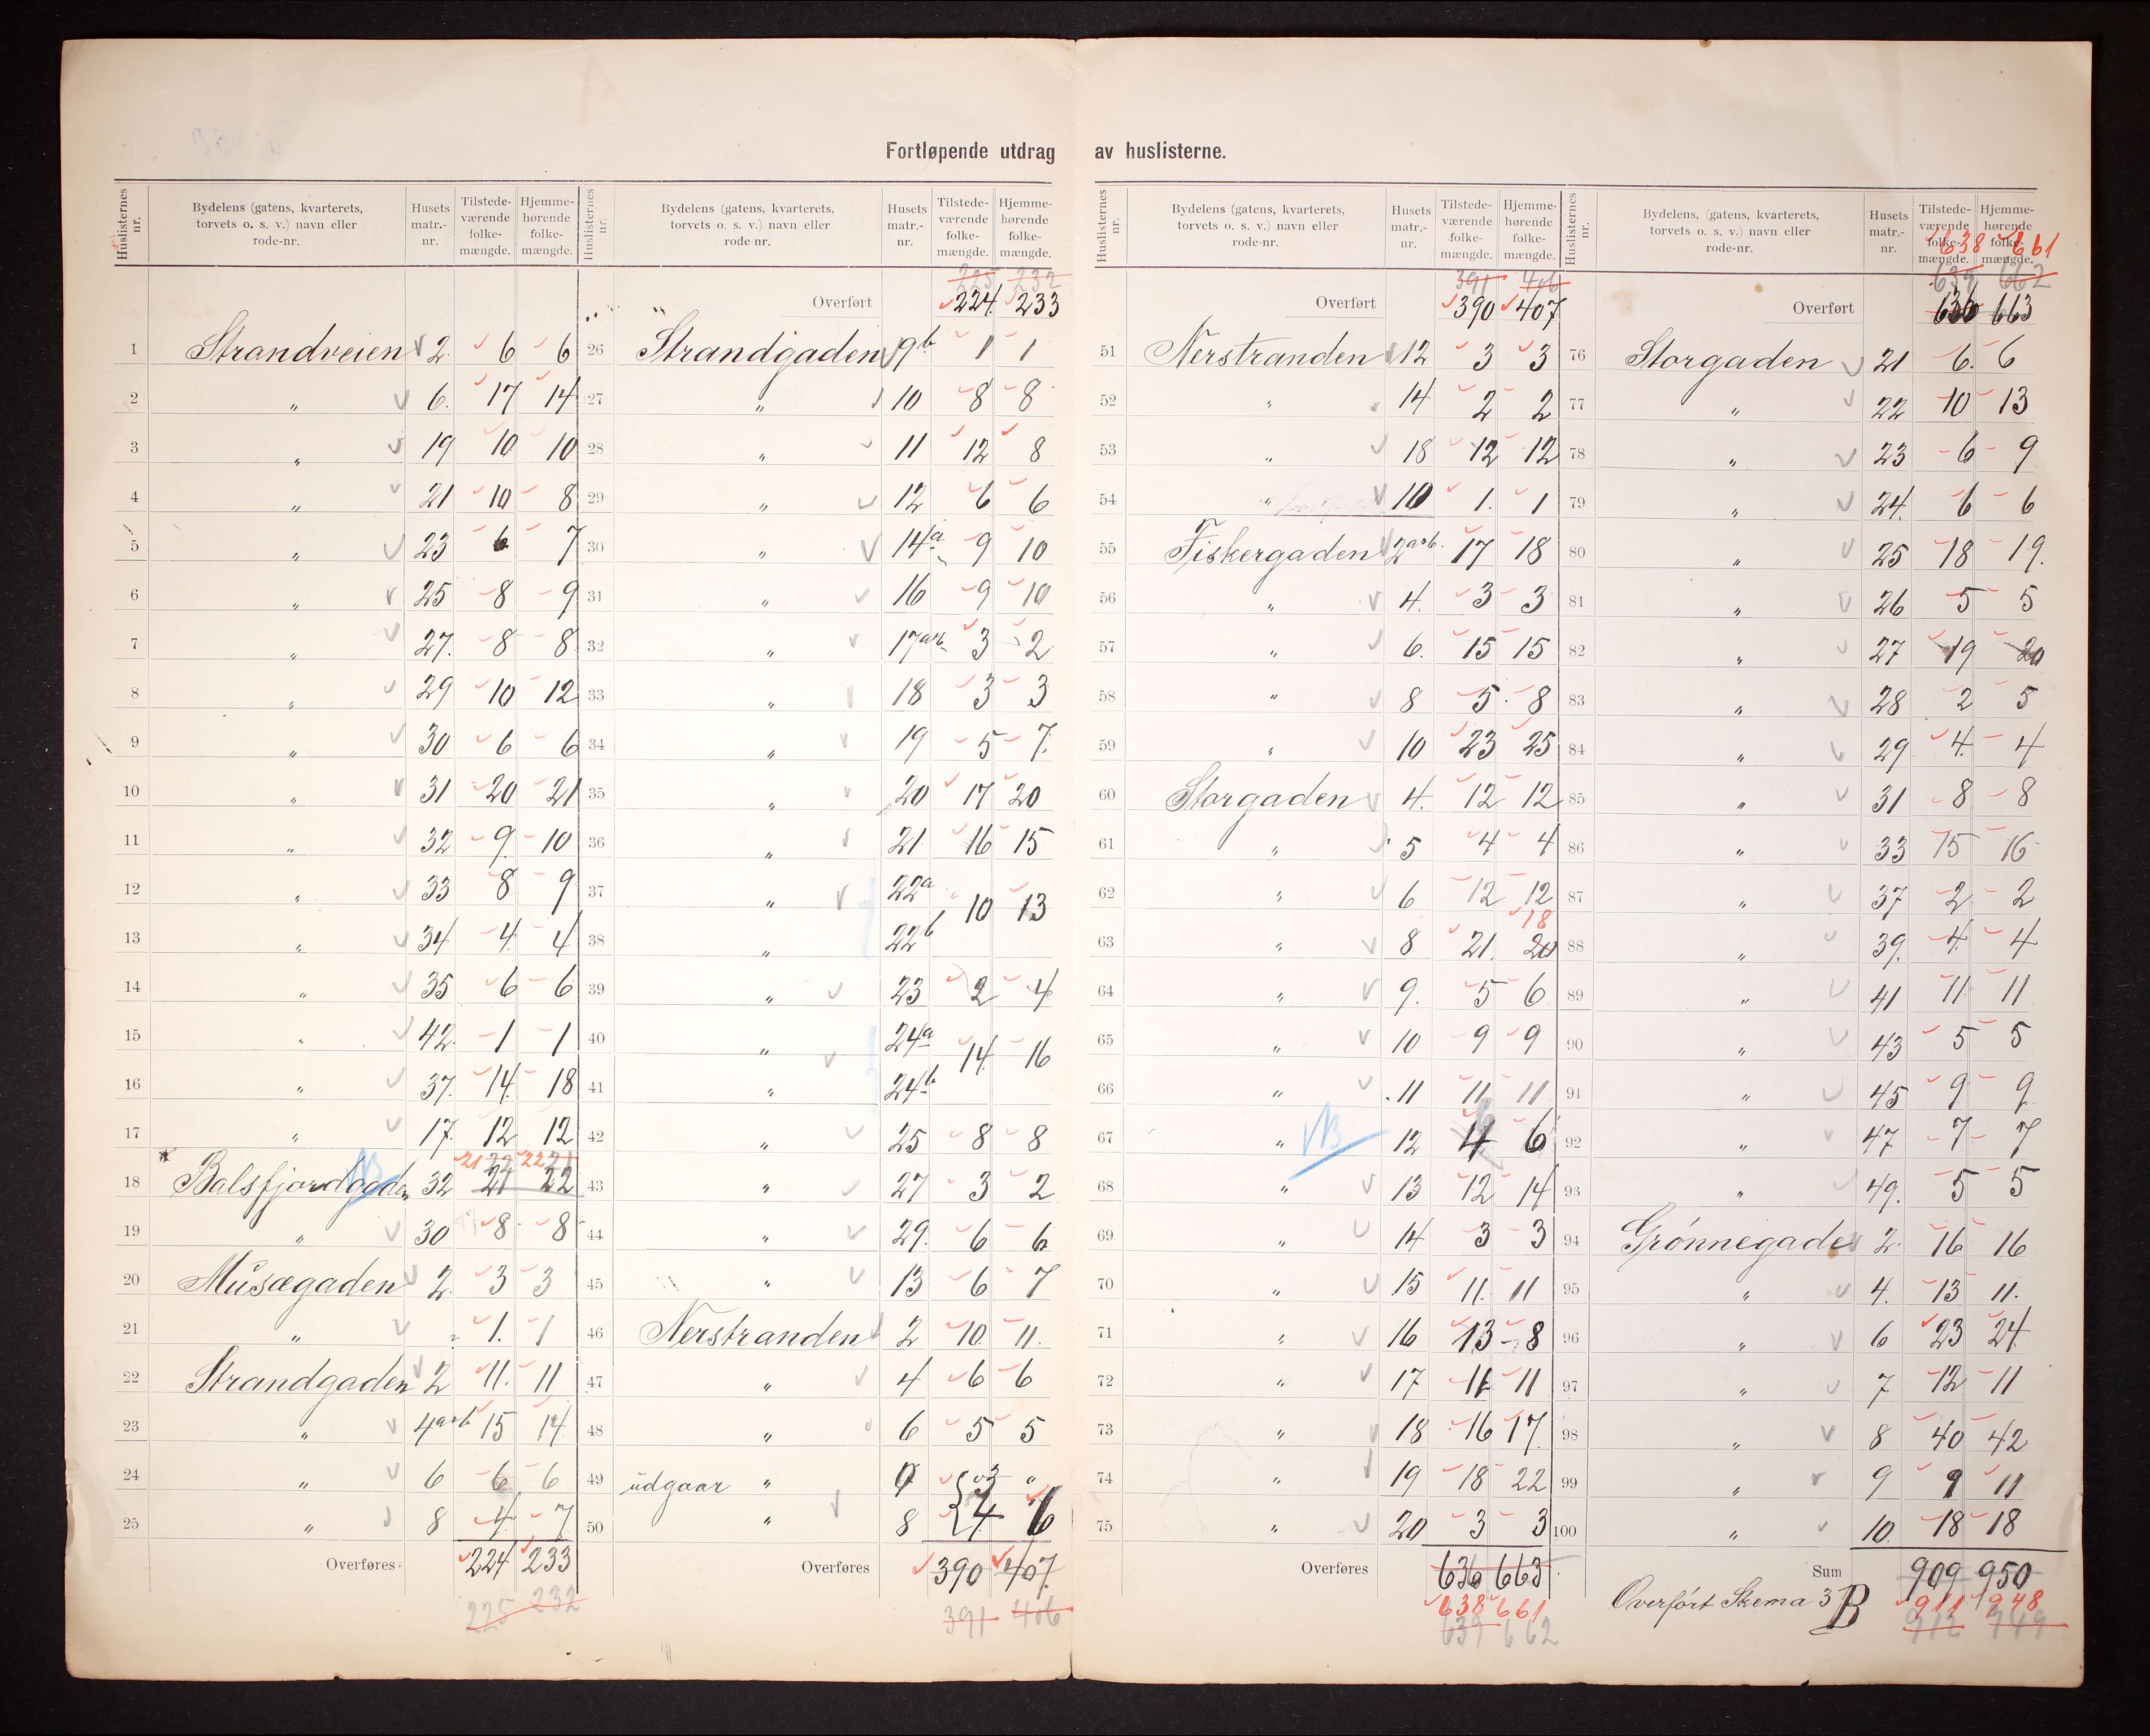 Fortløpende utdrag av huslisterne.
Huslisternes nr. | Bydelens (gatens, kvarterets, torvets o. s. v.) navn eller rode-nr. | Husets matr.-nr. | Tilstede-værende folke-mængde. | Hjemme-hørende folke-mængde.
1 Strandveien 2. 6 6
2 „ 6. 17 14
3 „ 19 10 10
4 „ 21 10 8
5 „ 23 6 7
6 „ 25 8 9
7 „ 27. 8 8
8 „ 29 10 12
9 „ 30 6 6
10 „ 31 20 21
11 „ 32 9 10
12 „ 33 8 9
13 „ 34 4 4
14 „ 35 6 6
15 „ 42 1 1
16 „ 37. 14 18
17 „ 17. 12 12
21 22 22 21
18 Balsfjordgaden NB 32 21 22
19 „ 30 8 8
20 Musægaden 2. 3 3
21 „ „ 1. 1
22 Strandgaden 2 11. 11
23 „ 4a&b 15 14
24 „ 6 6 6
25 „ 8 4 7
Overføres 224 233
225 232
Huslisternes nr. | Bydelens (gatens, kvarterets, torvets o. s. v.) navn eller rode-nr. | Husets matr.-nr. | Tilstede-værende folke-mængde. | Hjemme-hørende folke-mængde.
225 232
Overført 224. 233
26 Strandgaden 9b. 1 1
27 „ 10 8 8
28 „ 11 12 8
29 „ 12 6 6
30 „ 14a 9 10
31 „ 16 9 10
32 „ 17a&b 3 2
33 „ 18 3 3
34 „ 19 5 7.
35 „ 20 17 20
36 „ 21 16 15
37 „ 22a 10 13
38 „ 22b
39 „ 23 2 4
40 „ 24a 14. 16
41 „ 24b
42 „ 25 8 8
43 „ 27 3 2
44 „ 29. 6 6
45 „ 13 6 7
46 Nerstranden 2 10. 11.
47 „ 4 6 6
48 „ 6 5 5
49 udgaar „ „
50 „ 8 4 6
Overføres 390 407.
391 406
Huslisternes nr. | Bydelens (gatens, kvarterets, torvets o. s. v.) navn eller rode-nr. | Husets matr.-nr. | Tilstede-værende folke-mængde. | Hjemme-hørende folke-mængde.
391 406
Overført 390 407
51 Nerstranden 12 3 3
52 „ 14 2 2
53 „ 18 12 12
54 „ 10 1. 1
55 Fiskergaden 2a&b. 17 18
56 „ 4. 3 3
57 „ 6. 15 15
58 „ 8 5 8
59 „ 10 23 25
60 Storgaden 4. 12 12
61 „ 5 4 4
62 „ 6 12 12
18
63 „ 8 21. 20
64 „ 9. 5 6
65 „ 10 9 9
66 „ 11 11 11
67 „ NB 12 4 6
68 „ 13 12 14
69 „ 14 3 3
70 „ 15 11. 11
71 „ 16 13 8
72 „ 17 11 11
73 „ 18 16 17.
74 „ 19 18 22
75 „ 20 3 3
Overføres 636 663
638 661
639 662
Huslisternes nr. | Bydelens, (gatens, kvarterets, torvets o. s. v.) navn eller rode-nr. | Husets matr.-nr. | Tilstede-værende folke-mængde. | Hjemme-hørende folke-mængde.
638 661
639 662
Overført 636 663
76 Storgaden 21 6. 6
77 „ 22 10 13
78 „ 23 6 9
79 „ 24. 6 6
80 „ 25 18 19.
81 „ 26 5 5
82 „ 27 19 20
83 „ 28 2 5
84 „ 29 4. 4
85 „ 31 8 8
86 „ 33 15 16
87 „ 37 2 2
88 „ 39. 4. 4
89 „ 41 11 11
90 „ 43 5 5
91 „ 45 9 9
92 „ 47 7 7
93 „ 49. 5 5
94 Grønnegade 2. 16 16
95 „ 4. 13 11.
96 „ 6 23 24
97 „ 7 12 11
98 „ 8 40 42
99 „ 9 9 11
100 „ 10. 18 18
Sum 909 950
Overført Skema 3 B 911 948
912 949